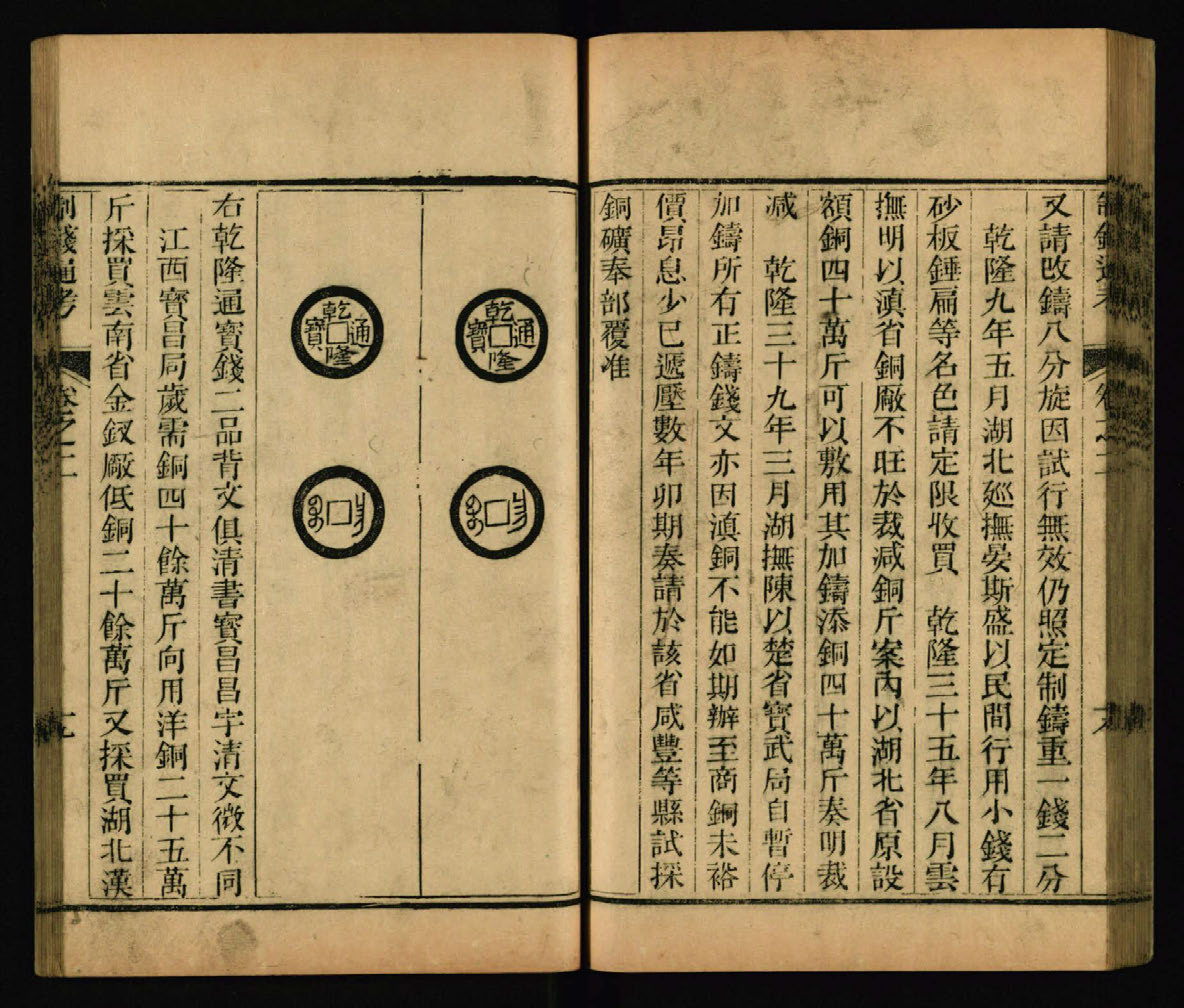 又請改鑄八分旋因試行無效仍照定制鑄重一錢二分
乾隆九年五月湖北廵撫晏斯盛以民間行用小錢有
砂板錘扁等名色請定限收買　乾隆三十五年八月雲
撫明以滇省銅厰不旺於裁减銅斤案內以湖北省原設
額銅四十萬斤可以敷用其加鑄添銅四十萬斤奏明裁
减　乾隆三十九年三月湖撫陳以楚省寶武局自暫停
加鑄所有正鑄錢文亦因滇銅不能如期辦至商銅未裕
價昂息少已遞壓數年卯期奏請於該省咸豐等縣試採
銅礦奉部覆准
乾隆通寶
乾隆通寶
右乾隆通寶錢二品背文俱清書寶昌昌字清文微不同
江西寶昌局歲需銅四十餘萬斤向用洋銅二十五萬
斤採買雲南省金釵厰低銅二十餘萬斤又採買湖北漢
制錢通考　卷之二